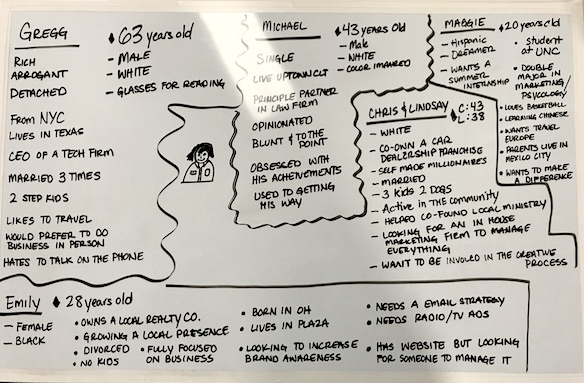 GREGG
♦63 years old
RICH
ARROGANT
DETACHED
- MALE
- WHITE
- GLASSES FOR READING
From NYC
LIVES IN TEXAS
CEO OF A TECH FIRM
MARRIED 3 TIMES
2 STEP KIDS
LIKES TO TRAVEL
WOULD PREFER TO DO
BUSINESS IN PERSON
HATES TO TALK ON THE PHONE
MICHAEL
♦43 YEARS Old
- Male
- WHITE
- COLOR IMPAIRED
SINGLE
LIVE UPTOWN CLT
PRINCIPLE PARTNER
IN LAW FIRM
OPINIONATED
BLUNT & TO THE
POINT
OBSESSED WITH
HIS ACHIEVEMENTS
USED TO GETTING
HIS WAY
MAGGIE
♦20 years old
- HISPANIC
- DREAMER
- WANTS A
SUMMER
INTERNSHIP
• STUDENT
AT UNC
• DOUBLE
MAJOR IN
MARKETING/
PSYCOLOGY
• LOVES BASKETBALL
• LEARNING CHINESE
• WANTS TRAVEL
EUROPE
• PARENTS LIVE IN
MEXICO CITY
• WANTS TO MAKE
A DIFFERENCE
CHRIS & LINDSAY
♦C: 43
L: 38
- WHITE
- CO-OWN A CAR
DEALERSHIP FRANCHISE
- SELF MADE MILLIONAIRES
- MARRIED
- 3 KIDS 2 DOGS
- Active in the community
- HELPED CO-FOUND LOCAL MINISTRY
- LOOKING FOR AN IN HOUSE
MARKETING FIRM TO MANAGE
EVERYTHING
- WANT TO BE INVOLVED IN THE CREATIVE
PROCESS
Emily
♦28 years old
- FEMALE
- BLACK
• OWNS A LOCAL REALTY CO.
• GROWING A LOCAL PRESENCE
• DIVORCED
• NO KIDS
• FULLY FOCUSED
ON BUSINESS
• BORN IN OH
• LIVES IN PLAZA
• LOOKING TO INCREASE
BRAND AWARENESS
• NEEDS A EMAIL STRATEGY
• NEEDS RADIO/TV ADS
• HAS WEBSITE BUT LOOKING
FOR SOMEONE TO MANAGE IT